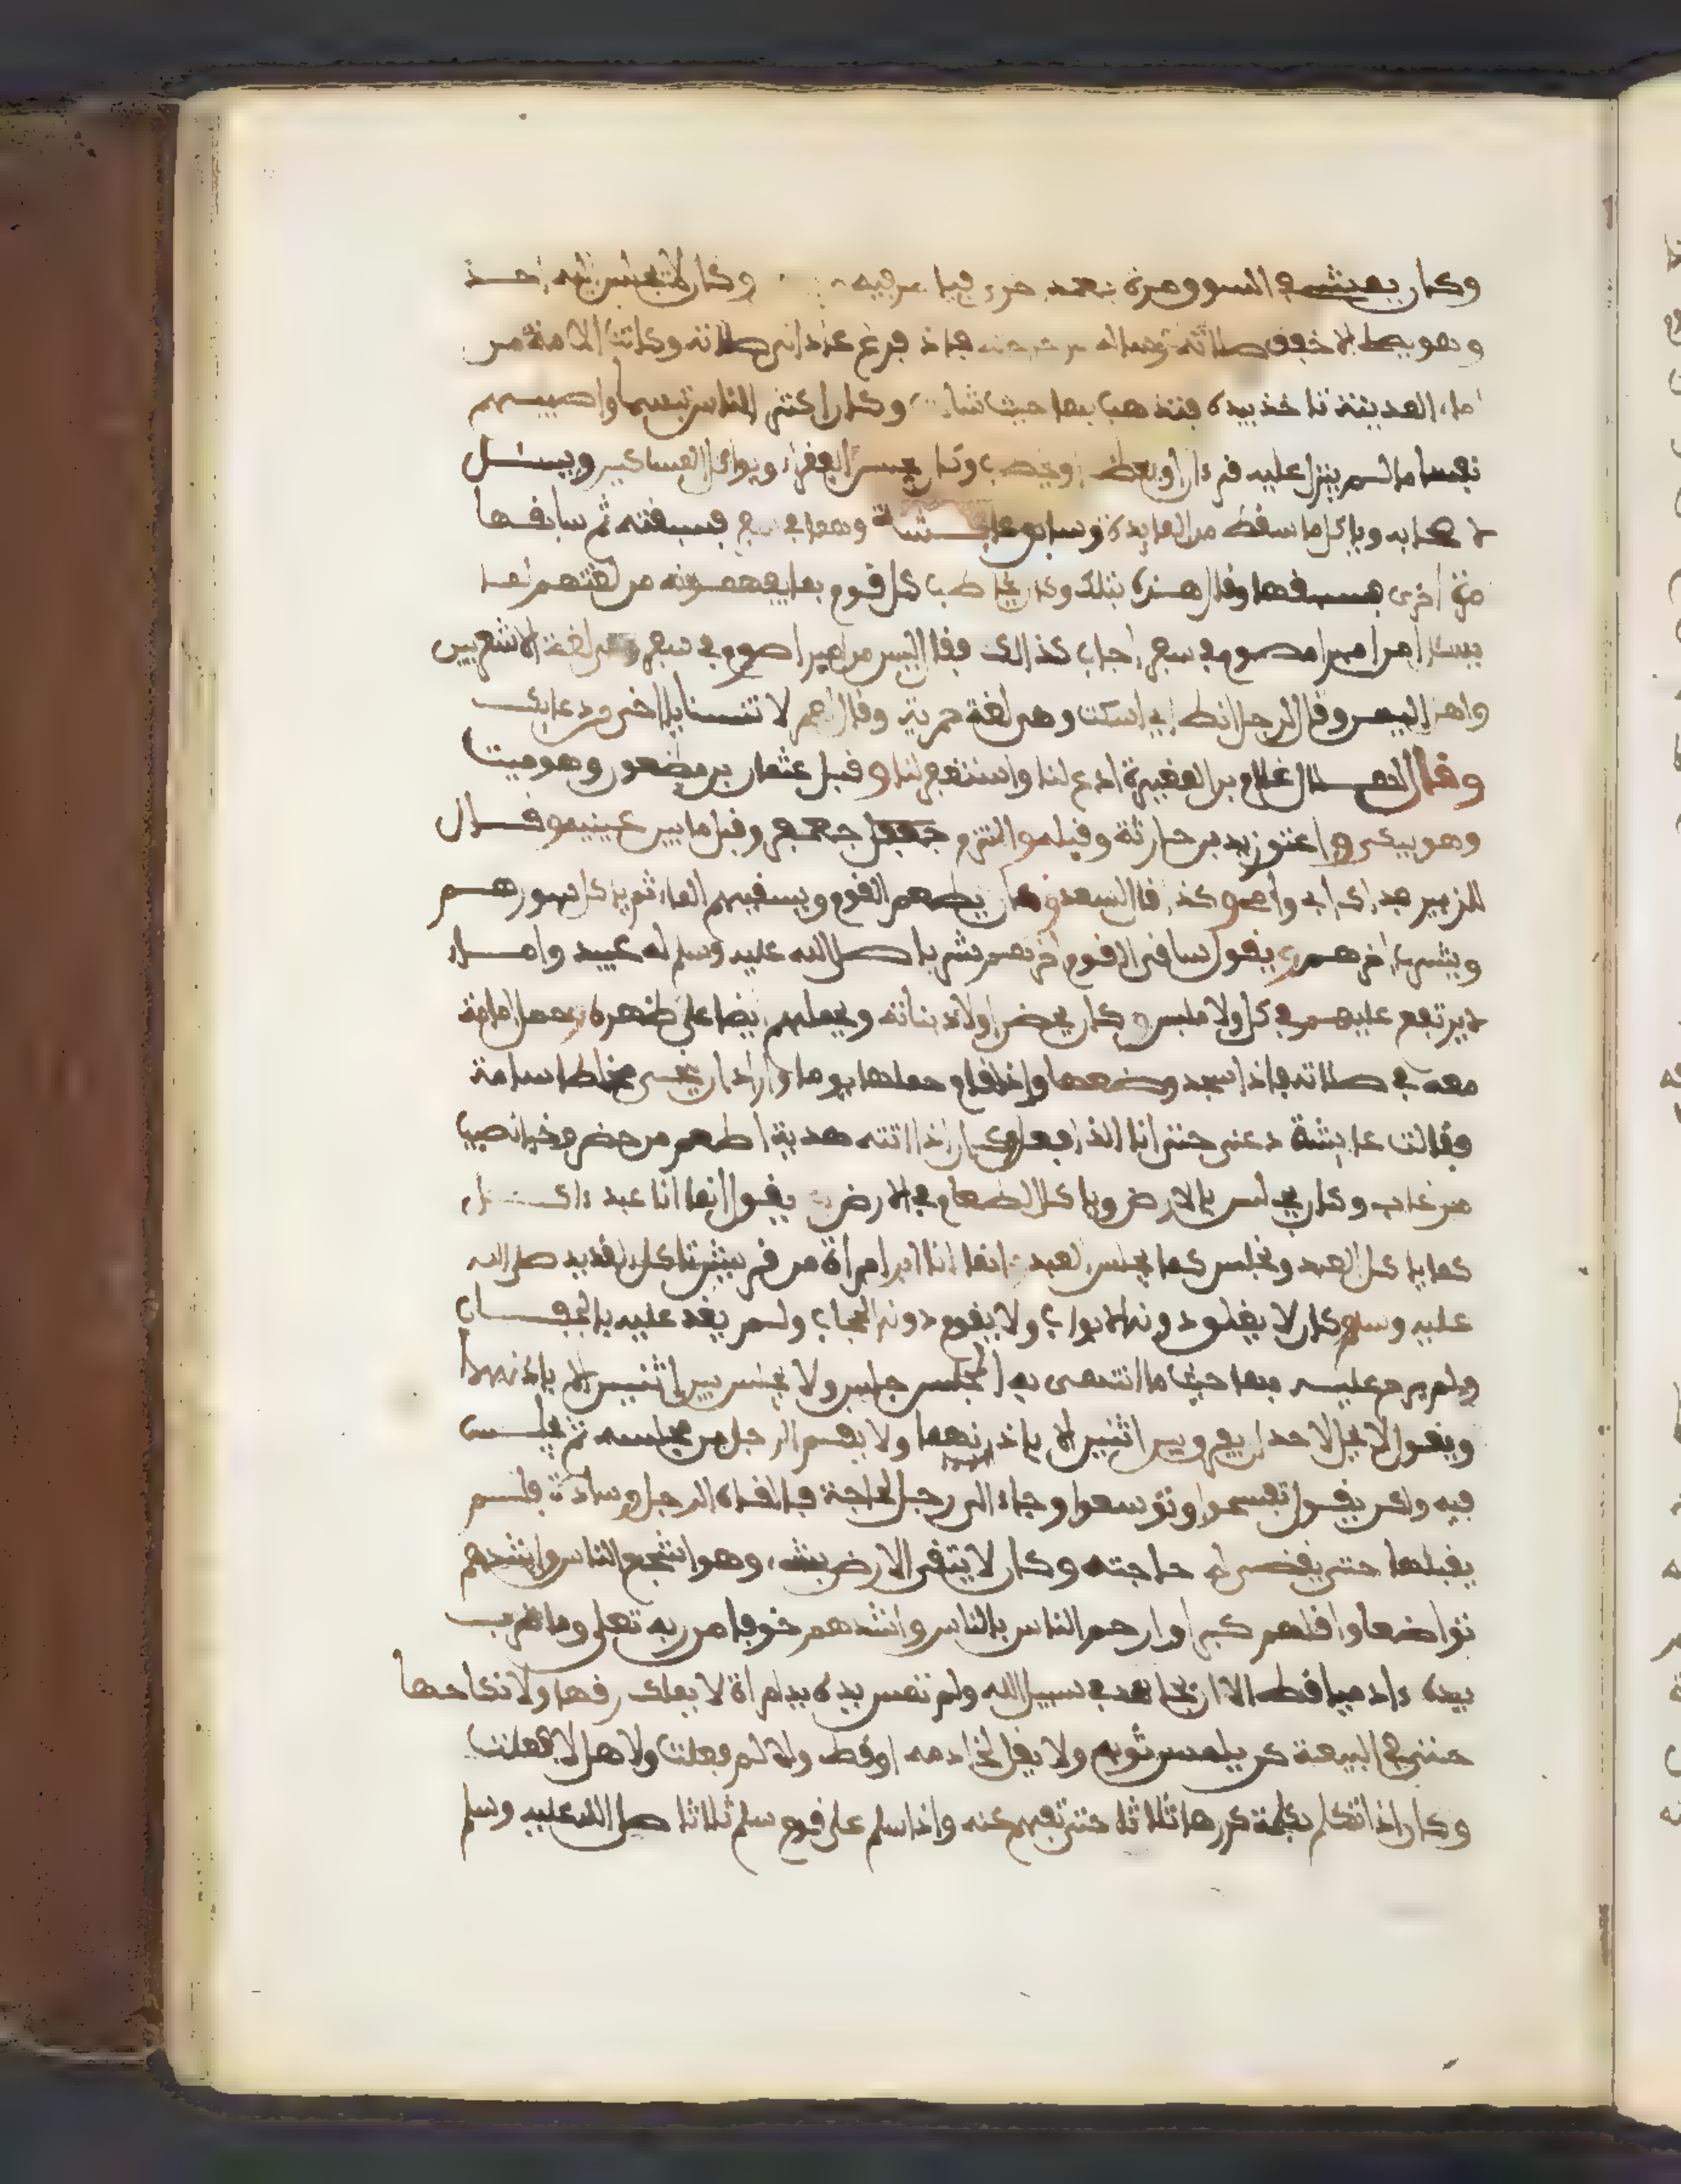 وكان يمشي في السوق مرة بعد اخرى فيما وكان لا يجلس اليه احد
وهو يصلي الا خفف صلاته وسأله عن حاجته فاذا فرغ عاد الى صلاته وكانت الامة من
اماء المدينة تاخذ بيده فتذهب بها حيث شاءت وكان اكثر الناس تبسما واطيبهم
نفسا ما لم ينزل عليه قرءان او يعظ او يخطب وكان يجالس الفقراء ويواكل المساكين ويسئل
اصحابه وياكل ما سقط من المايدة وسابق عايشة وهما في سفر فسبقته ثم سابقها
مرة اخرى فسبقها وقال هذه بتلك وكان يخاطب كل قوم بما يفهمونه من لغتهم لما
سئل امن امبر امصوم في سفر اجاب كذالك فقال ليس من امبر اصيوم في سفر وهي لغة الاشعريين
وقال لرجل انط اي اسكت وهي لغة حميرية وقال لعمر لا تنسنا يا اخي من دعايك
وقال لهلال غلام بن المغيرة ادع لنا واستغفر لنا وقبل عثمان بن مظعون وهو ميت
وهو يبكي واعتنق زيد بن حارثة وقبله والتزم جعفر وقبل ما بين عينيه وقال
للزبير فداك ابي وامي وكذا قال لسعد وكان يطعم القوم ويسقيهم الماء ثم ياكل سورهم
ويشرب اخرهم ويقول ساقي القوم اخرهم شربا صلى الله عليه وسلم له عبيد واماء
لا يرتفع عليهم في اكل ولا ملبس وكان يحضن اولاد بناته ويحملهم ايضا على ظهره يحمل امامة
معه في صلاته فاذا سجد وضعها واذا قام حملها يوما واراد ان ينحي مخاط اسامة
فقالت عايشة دعني حتى انا الذي افعل وكان اذا اتته هدية اطعم من حضر وخبا نصيب
من غاب وكان يجلس بالارض وياكل الطعام في الارض يقول انما انا عبد ءاكل
كما ياكل العبد ونجلس كما يجلس العبد انما انا ابن امراة من قريش تاكل القديد صلى الله
عليه وسلم وكان لا يغلق دونه الابواب ولا يقوم دونه الحجاب ولم يغد عليه بالجفان
ولم يرح عليه بها حيث ما انتهى به المجلس جلس ولا يجلس بين اثنين الا باذنهما
ويقول لا يحل لاحد ان يفرق بين اثنين الا باذنهما ولا يقيم الرجل من مجلسه ثم يجلس
فيه ولكن يقول تفسحوا وتوسعوا وجاء اليه رجل لحاجة فالقى له الرجل وسادة فلم
يقبلها حتى يقضي له حاجته وكان لا يتقي الارض بشيء وهو اشجع الناس واشدهم
تواضعا واقلهم كبرا وارحم الناس بالناس واشدهم خوفا من ربه تعلى وما ضرب
بيده ءادميا قط الا ان يجاهد في سبيل الله ولم تمس يده يد امراة لا يملك رقها ولا نكاحها
حتى في البيعة كن يلمسن ثوبه ولا يقل لخادمه اف قط ولا لم فعلت ولا هلا فعلت
وكان اذا تكلم بكلمة كررها ثلاثا حتى تفهم عنه واذا سلم على قوم سلم ثلاثا صلى الله عليه وسلم